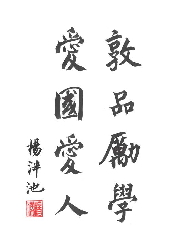 敦品勵學
愛國愛人
楊泮池